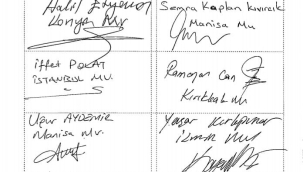 Halil Etyemez
Konya Mv
Semra Kaplan Kıvırcık
Manisa Mv
İffet POLAT
İSTANBUL MV.
Ramazan Can
Kırıkkale Mv
Uğur AYDEMİR
Manisa Mv.
Yaşar Kırkpınar
İzmir Mv